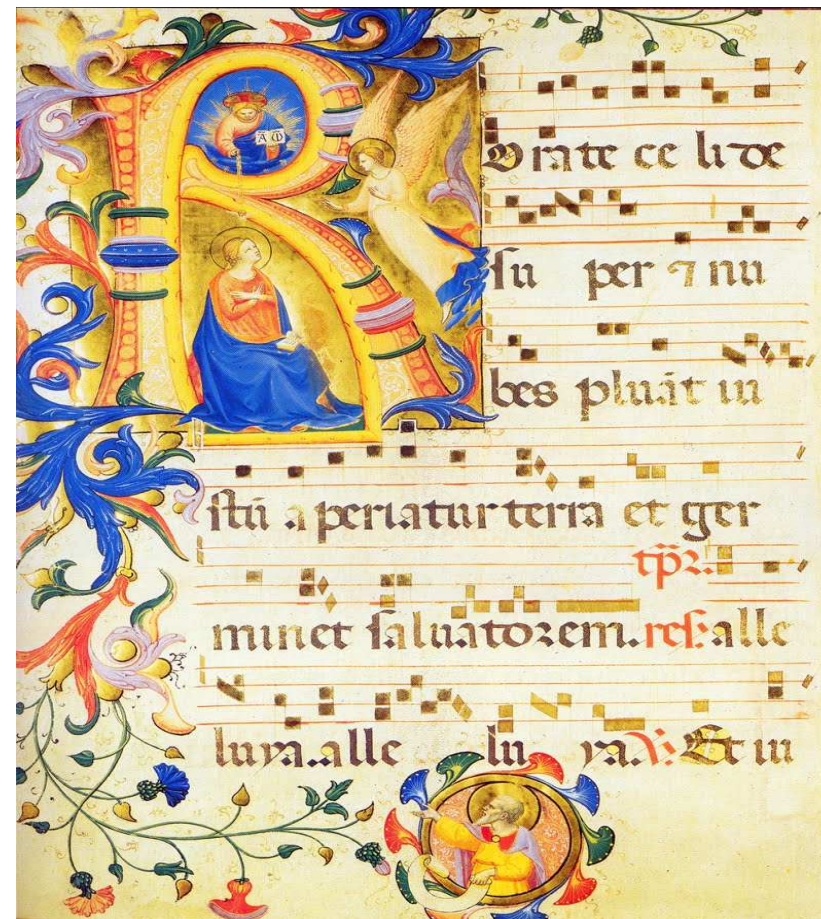 R
A Ω
orate ce li de
su per ⁊ nu
bes pluāt iu
stū a periatur terra et ger
tp̄r.
minet saluatorem. res. alle
luya. alle lu ya. V. Et iu